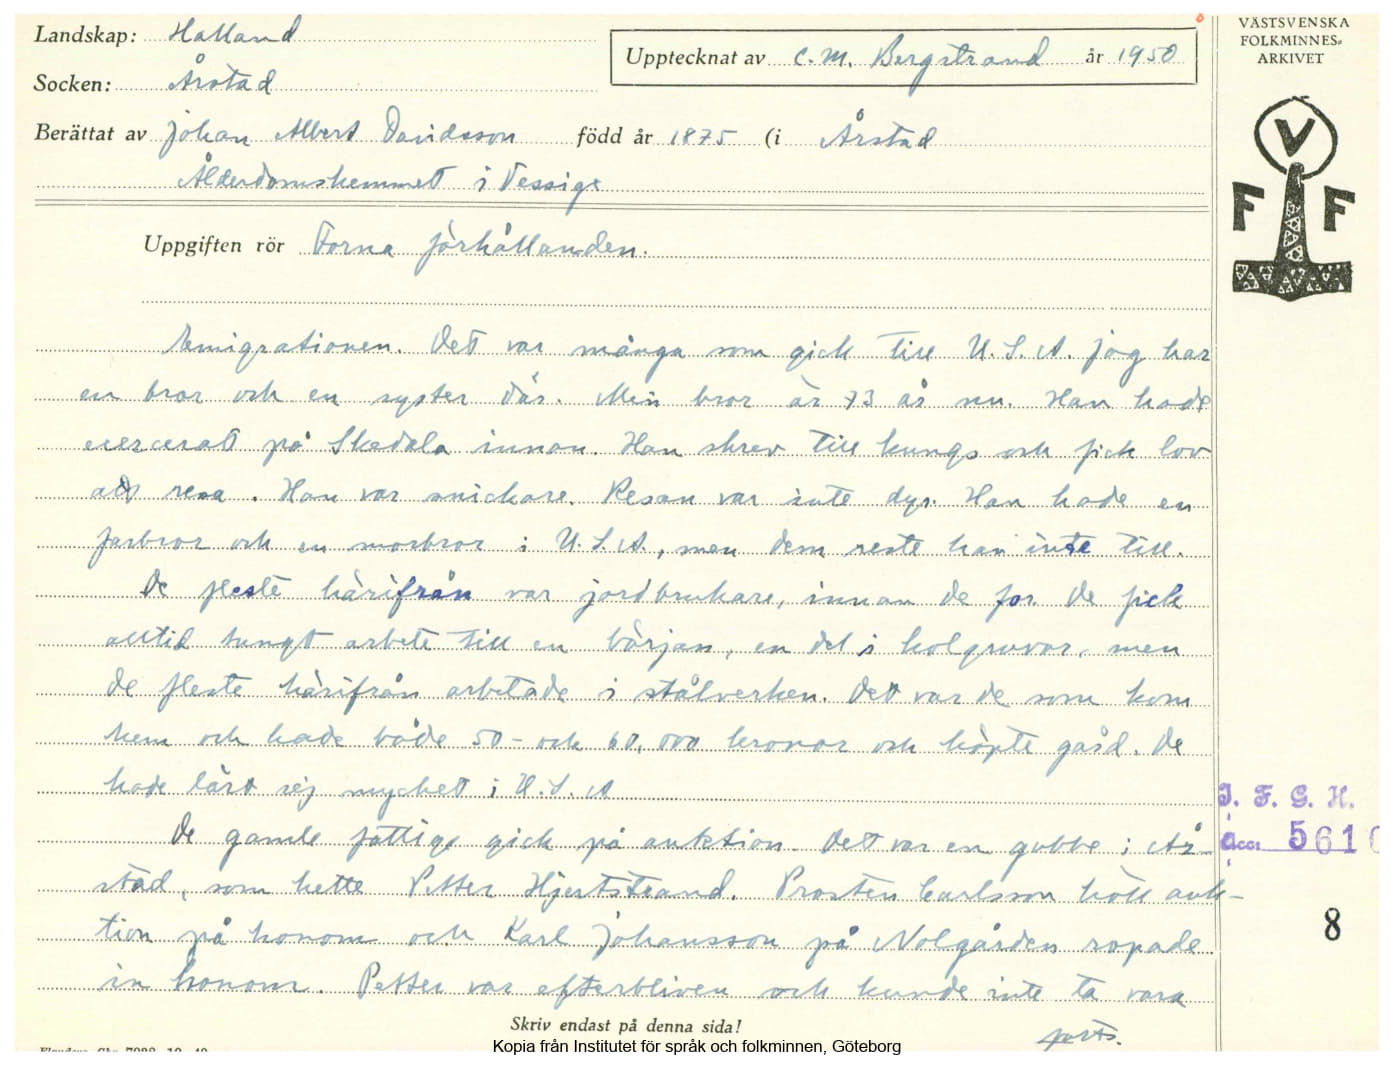 Landskap: Halland
Socken: Årstad
Upptecknat av C. M. Bergstrand år 1950
Berättat av Johan Albert Davidsson född år 1875 (i Årstad
Ålderdomshemmet i Vessige
VÄSTSVENSKA
FOLKMINNES-
ARKIVET
V
F F
Uppgiften rör Forna förhållanden.
Emigrationen. Det var många som gick till U.S.A. Jag har
en bror och en syster där. Min bror är 73 år nu. Han hade
exercerat på Skedala innan. Han skrev till kungs och fick lov
att resa. Han var snickare. Resan var inte dyr. Han hade en
farbror och en morbror i U.S.A., men dem reste han inte till.
De fleste härifrån var jordbrukare, innan de for de fick
alltid tungt arbete till en början, en del i kolgruvor, men
de fleste härifrån arbetade i stålverken. Det var de som kom
hem och hade både 50- och 60,000 kronor och köpte gård. De
hade lärt sig mycket i U.S.A
De gamle fattige gick på auktion. Det var en gubbe i År-
stad, som hette Petter Hjertstrand. Prosten Carlsson höll auk-
tion på honom och Karl Johansson på Nolgården ropade
in honom. Petter var efterbliven och kunde inte ta vara
forts.
I. F. G. H.
Acc. 5610
8
Skriv endast på denna sida!
Kopia från Institutet för språk och folkminnen, Göteborg